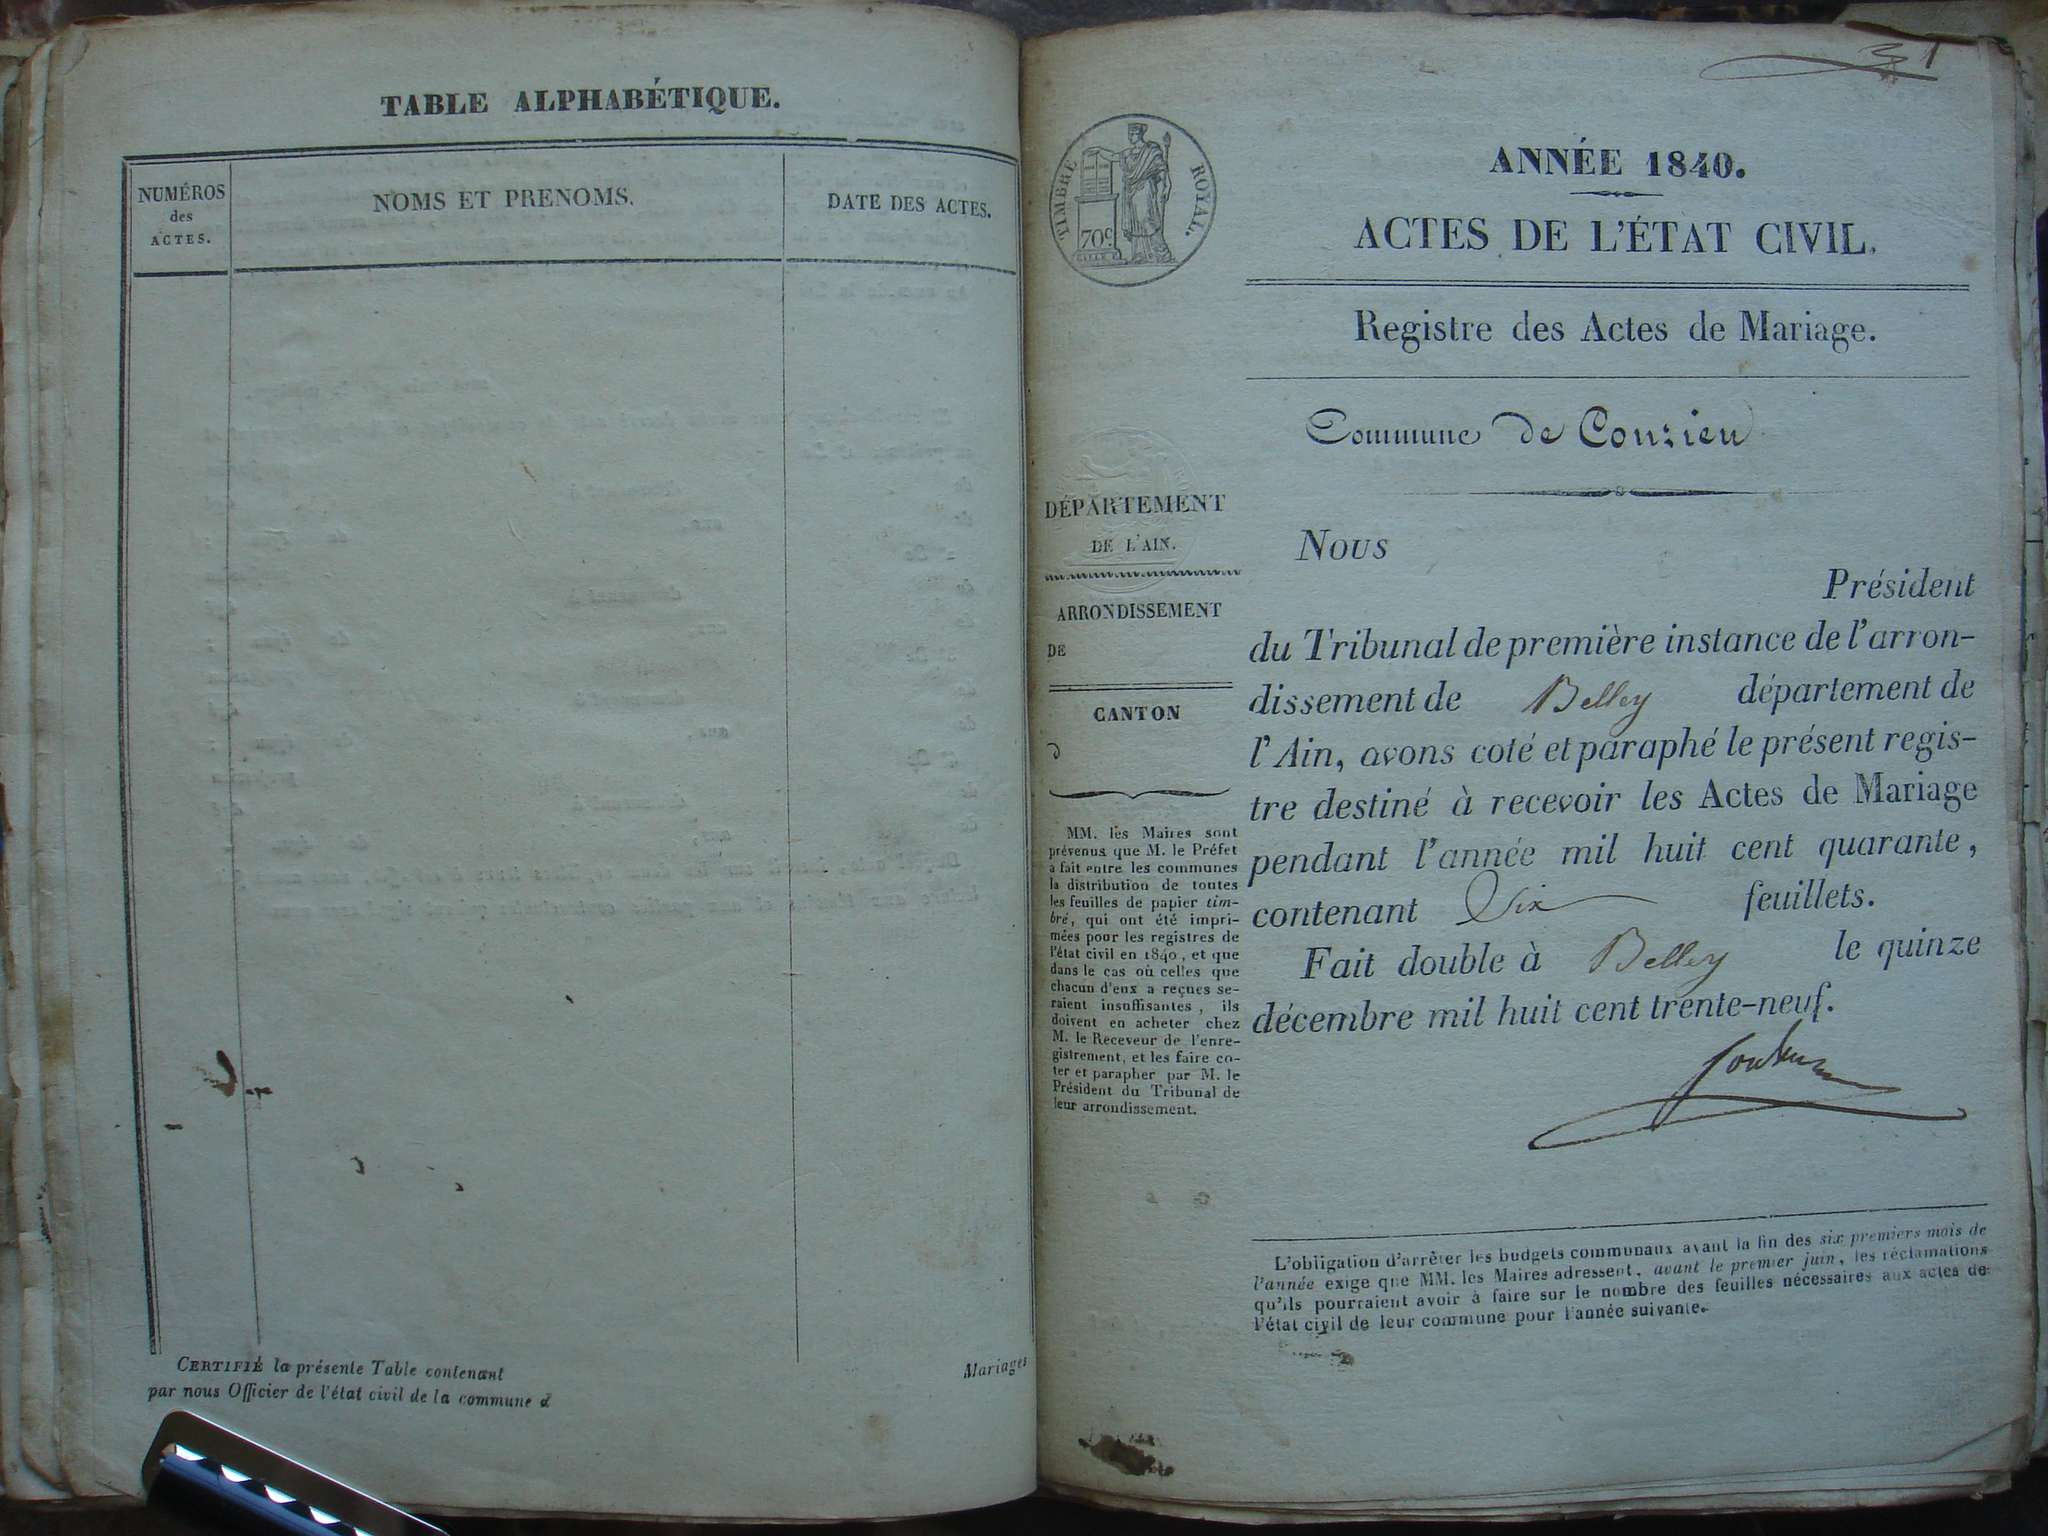 TABLE ALPHABÉTIQUE.
NUMÉROS
des
ACTES.
NOMS ET PRENOMS.
DATE DES ACTES.
CERTIFIÉ la présente Table contenant
par nous Officier de l'état civil de la commune d
Mariages
1
TIMBRE ROYAL.
70c
ANNÉE 1840.
ACTES DE L'ÉTAT CIVIL.
Registre des Actes de Mariage.
Commune de Conzieu
DÉPARTEMENT
DE L'AIN.
ARRONDISSEMENT
DE
CANTON
d
MM. les Maires sont
prévenus que M. le Préfet
a fait entre les communes
la distribution de toutes
les feuilles de papier tim-
bré, qui ont été impri-
mées pour les registres de
l'état civil en 1840, et que
dans le cas où celles que
chacun d'eux a reçues se-
raient insuffisantes, ils
doivent en acheter chez
M. le Receveur de l'enre-
gistrement, et les faire co-
ter et parapher par M. le
Président du Tribunal de
leur arrondissement.
Nous
Président
du Tribunal de première instance de l'arron-
dissement de Belley département de
l'Ain, avons coté et paraphé le présent regis-
tre destiné à recevoir les Actes de Mariage
pendant l'année mil huit cent quarante,
contenant Six feuillets.
Fait double à Belley le quinze
décembre mil huit cent trente-neuf.
L'obligation d'arrêter les budgets communaux avant la fin des six premiers mois de
l'année exige que MM. les Maires adressent, avant le premier juin, les réclamations
qu'ils pourraient avoir à faire sur le nombre des feuilles nécessaires aux actes de
l'état civil de leur commune pour l'année suivante.